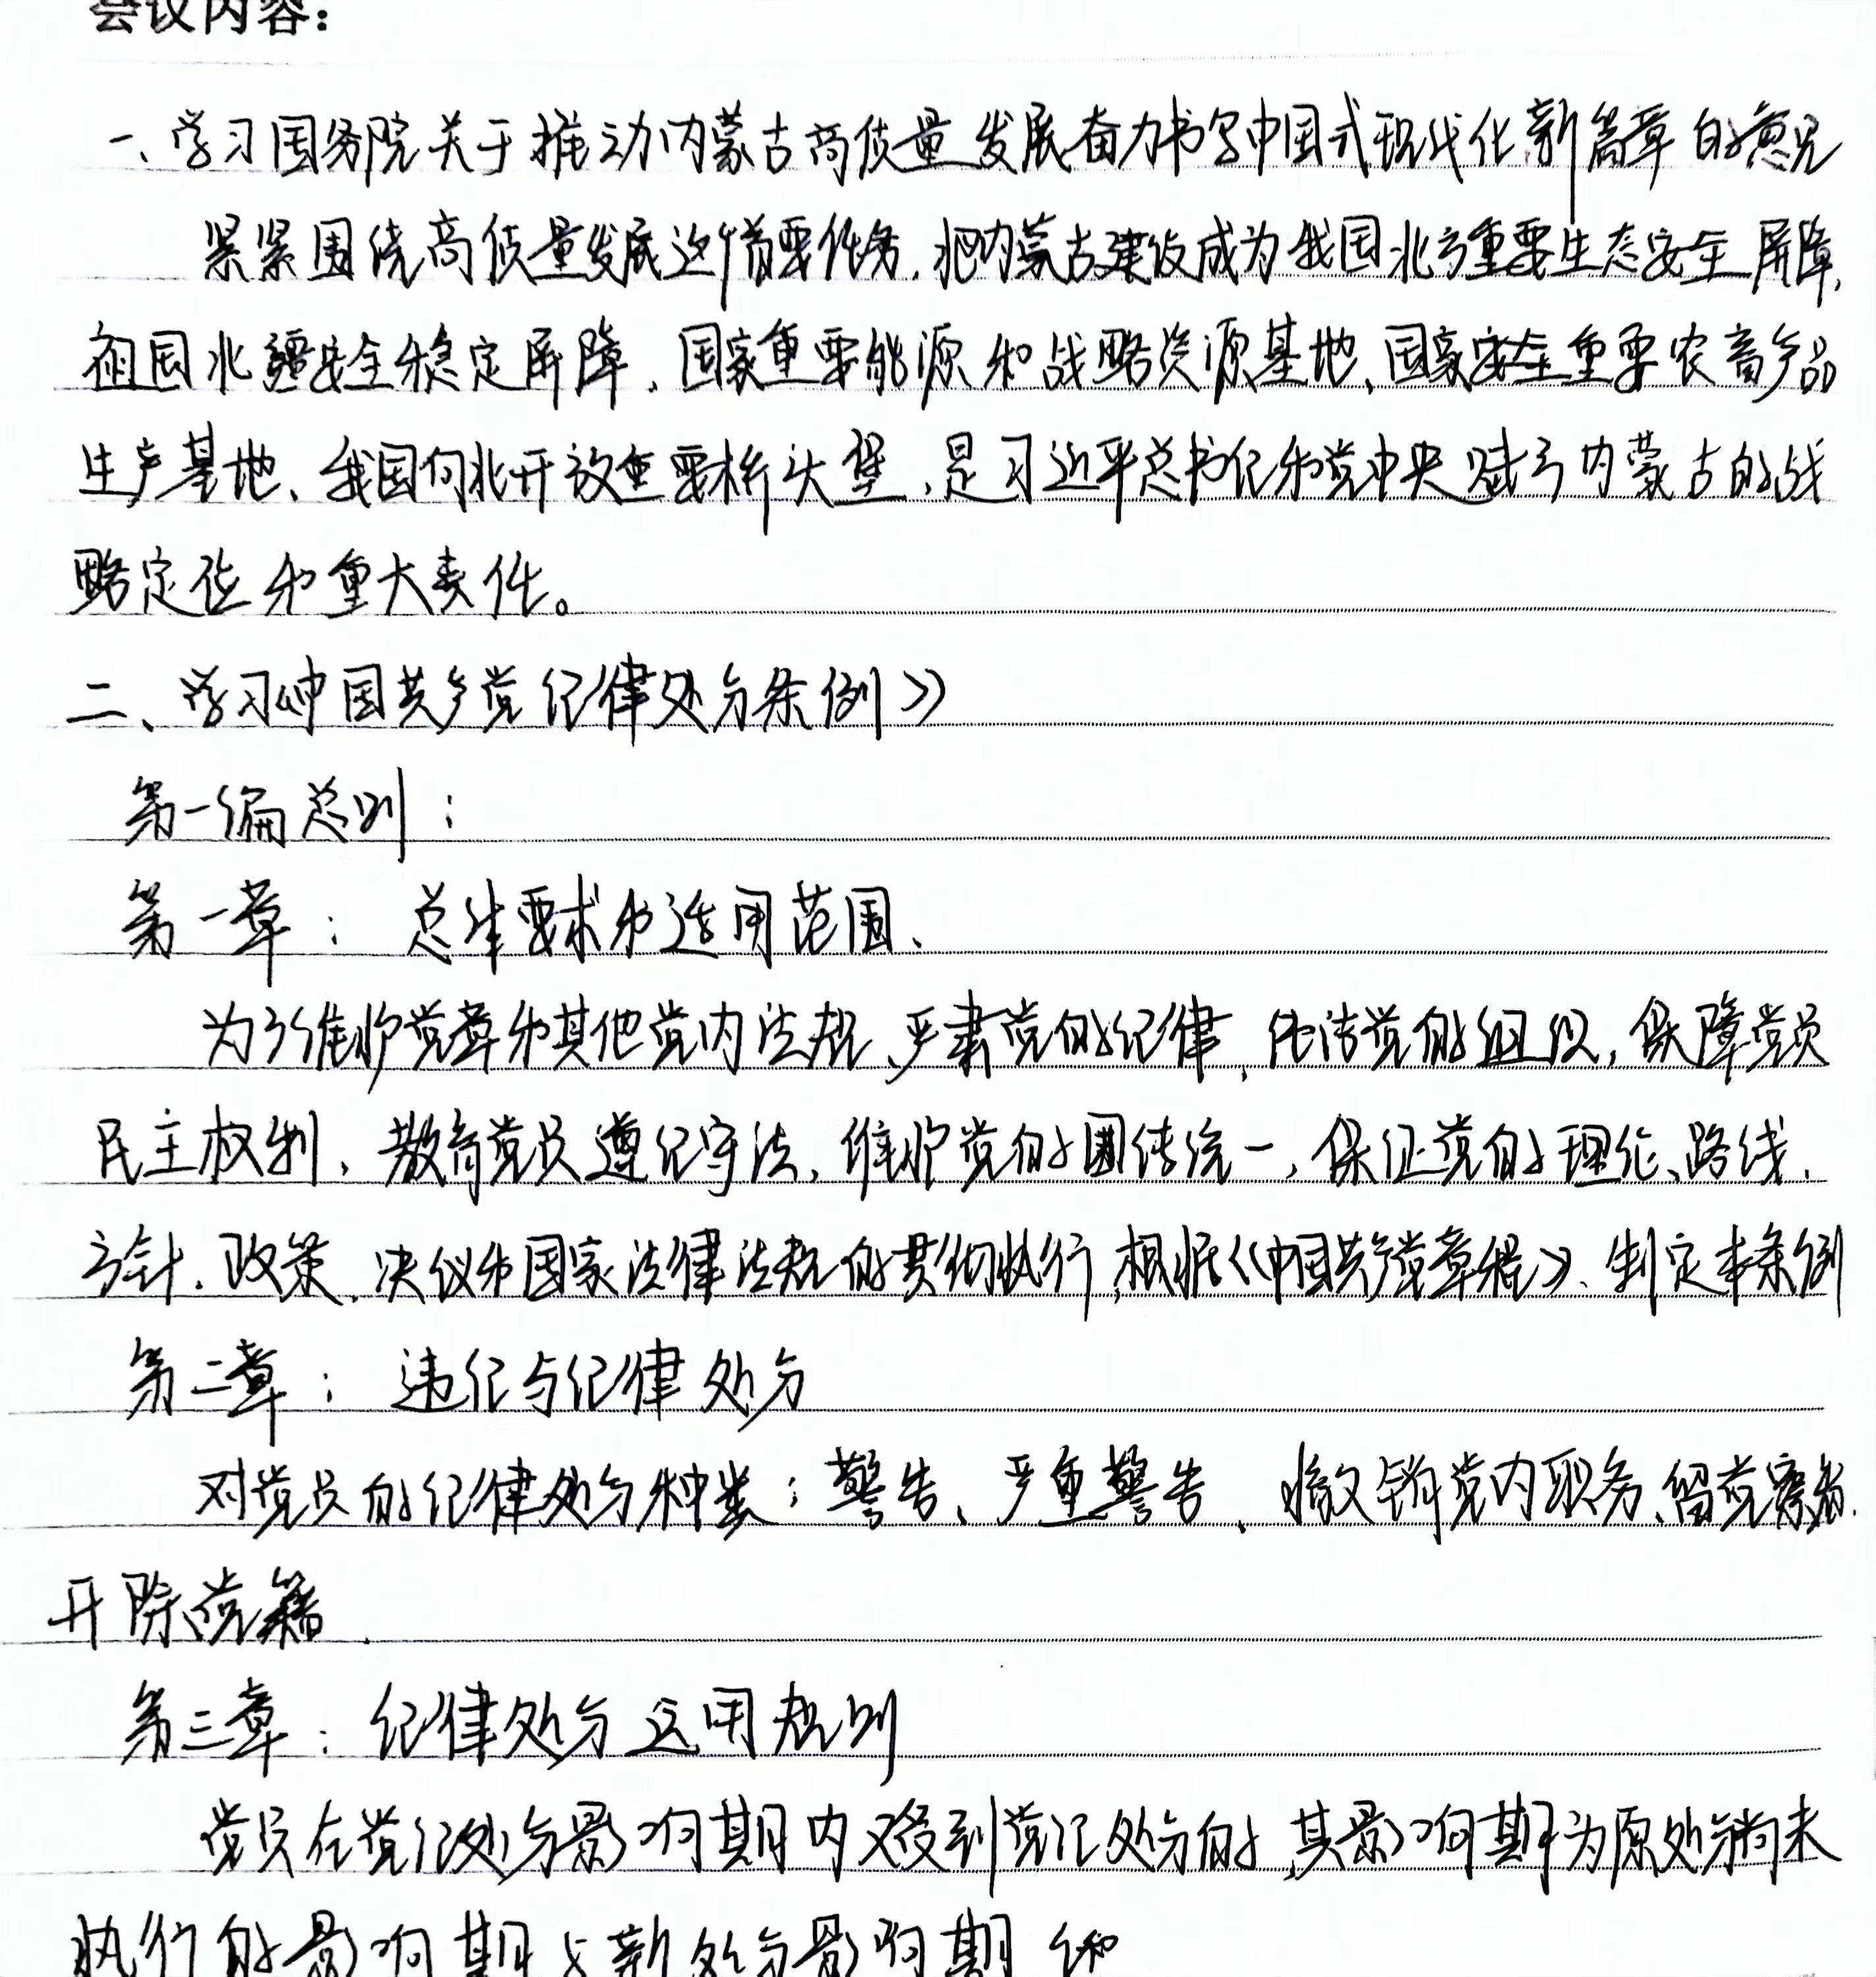 会议内容：
一、学习国务院关于推动内蒙古高质量发展奋力书写中国式现代化新篇章的意见
紧紧围绕高质量发展这个首要任务，把内蒙古建设成为我国北方重要生态安全屏障、
祖国北疆安全稳定屏障、国家重要能源和战略资源基地、国家安全重要农畜产品
生产基地、我国向北开放重要桥头堡，是习近平总书记和党中央赋予内蒙古的战
略定位和重大责任。
二、学习《中国共产党纪律处分条例》
第一编总则：
第一章：总体要求和适用范围、
为了维护党章和其他党内法规、严肃党的纪律，纯洁党的组织，保障党员
民主权利，教育党员遵纪守法，维护党的团结统一，保证党的理论、路线、
方针、政策、决议和国家法律法规的贯彻执行，根据《中国共产党章程》、制定本条例
第二章：违纪与纪律处分
对党员的纪律处分种类：警告、严重警告、撤销党内职务、留党察看、
开除党籍、
第三章：纪律处分运用规则
党员在党纪处分影响期内又受到党纪处分的，其影响期为原处分尚未
执行的影响期与新处分影响期 和